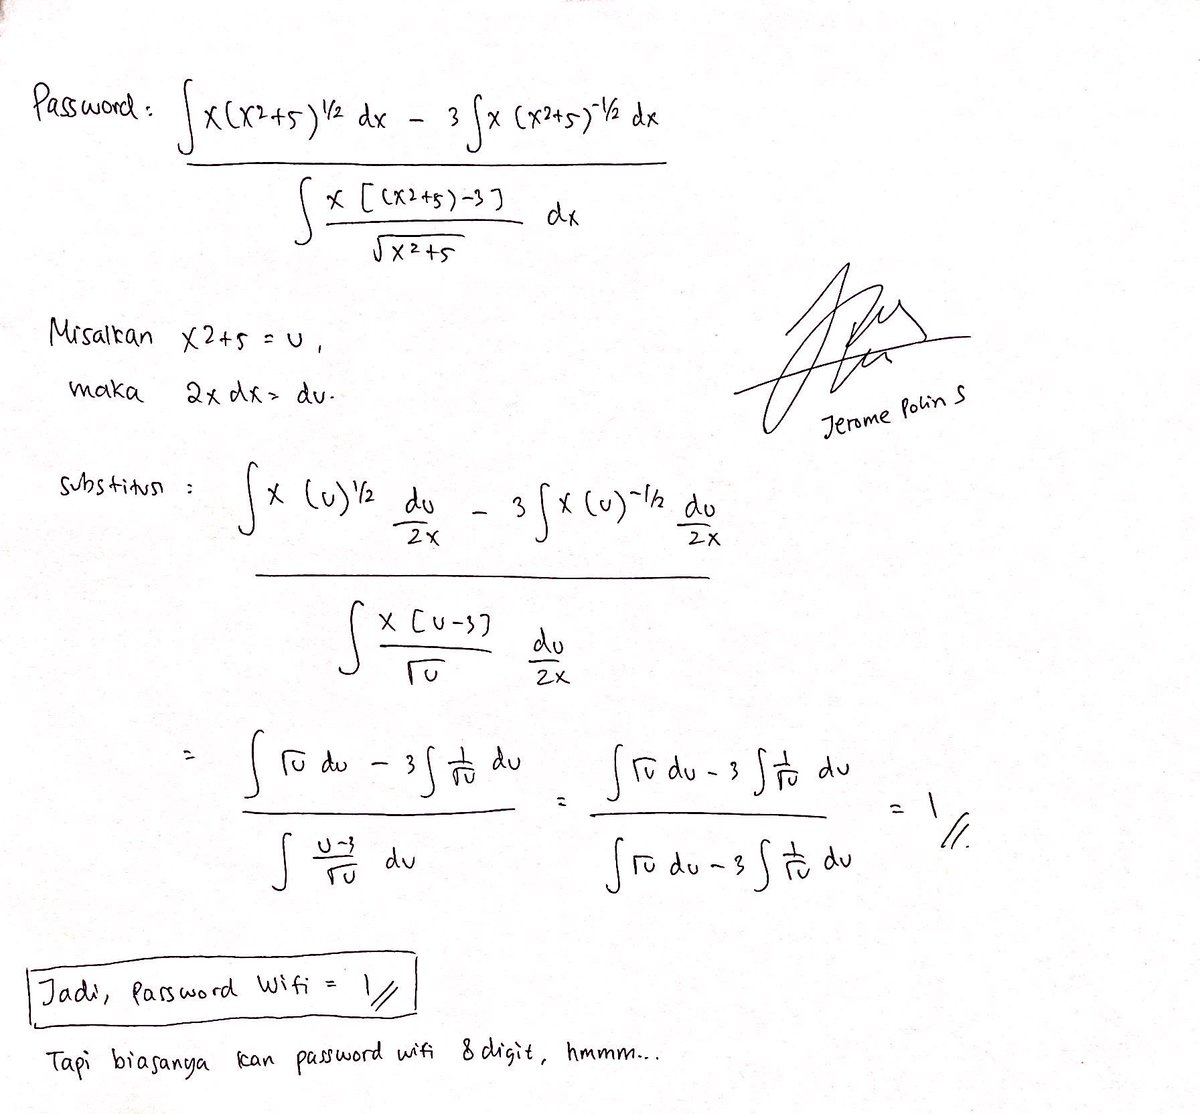 Password : ∫ x(x2+5)^1/2 dx - 3 ∫ x (x2+5)^-1/2 dx
∫ x [(x2+5)-3] / √x2+5 dx
Misalkan x2+5 = u,
maka 2x dx = du.
Jerome Polin S
Substitusi : ∫ x (u)^1/2 du/2x - 3 ∫ x (u)^-1/2 du/2x
∫ x [u-3] / √u du/2x
= ∫ √u du - 3 ∫ 1/√u du = ∫ √u du - 3 ∫ 1/√u du = 1 //.
∫ u-3/√u du ∫ √u du - 3 ∫ 1/√u du
Jadi, Password Wifi = 1 //
Tapi biasanya kan password wifi 8 digit, hmmm...